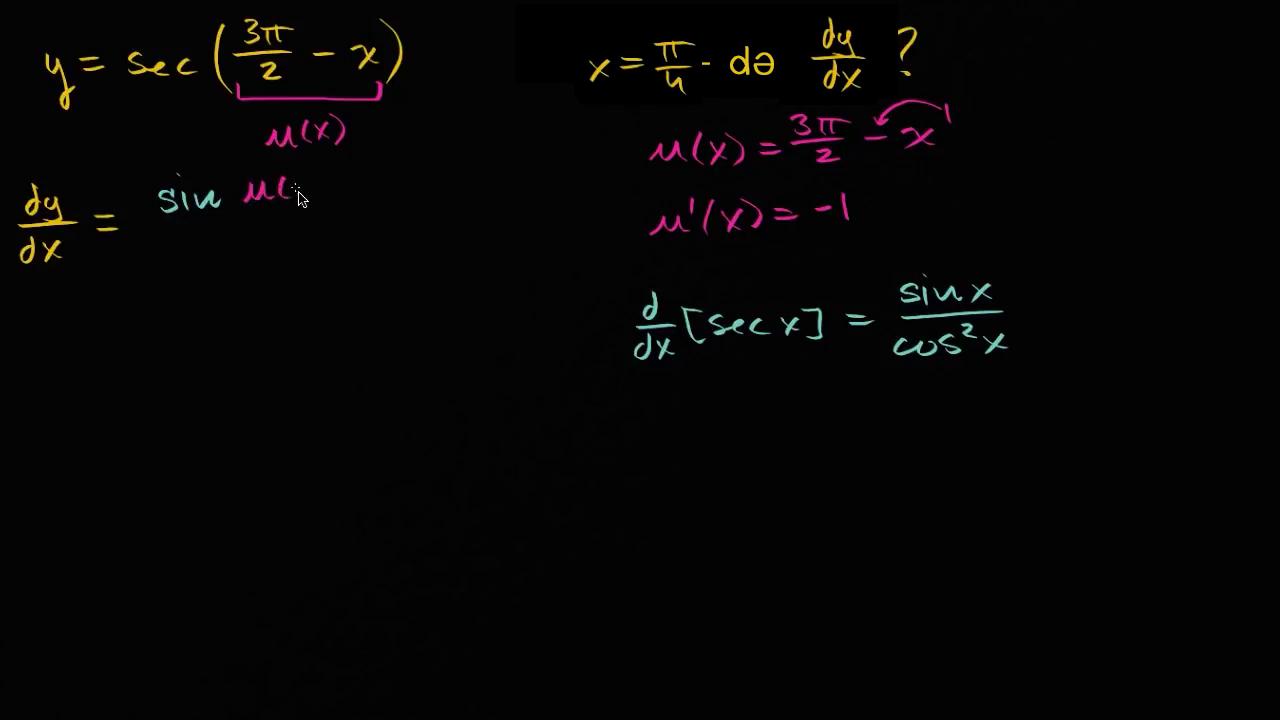 y = sec(3π/2 - x)
u(x)
dy/dx = sin u(
x = π/4 - də dy/dx ?
u(x) = 3π/2 - x¹
u'(x) = -1
d/dx [sec x] = sin x/cos²x